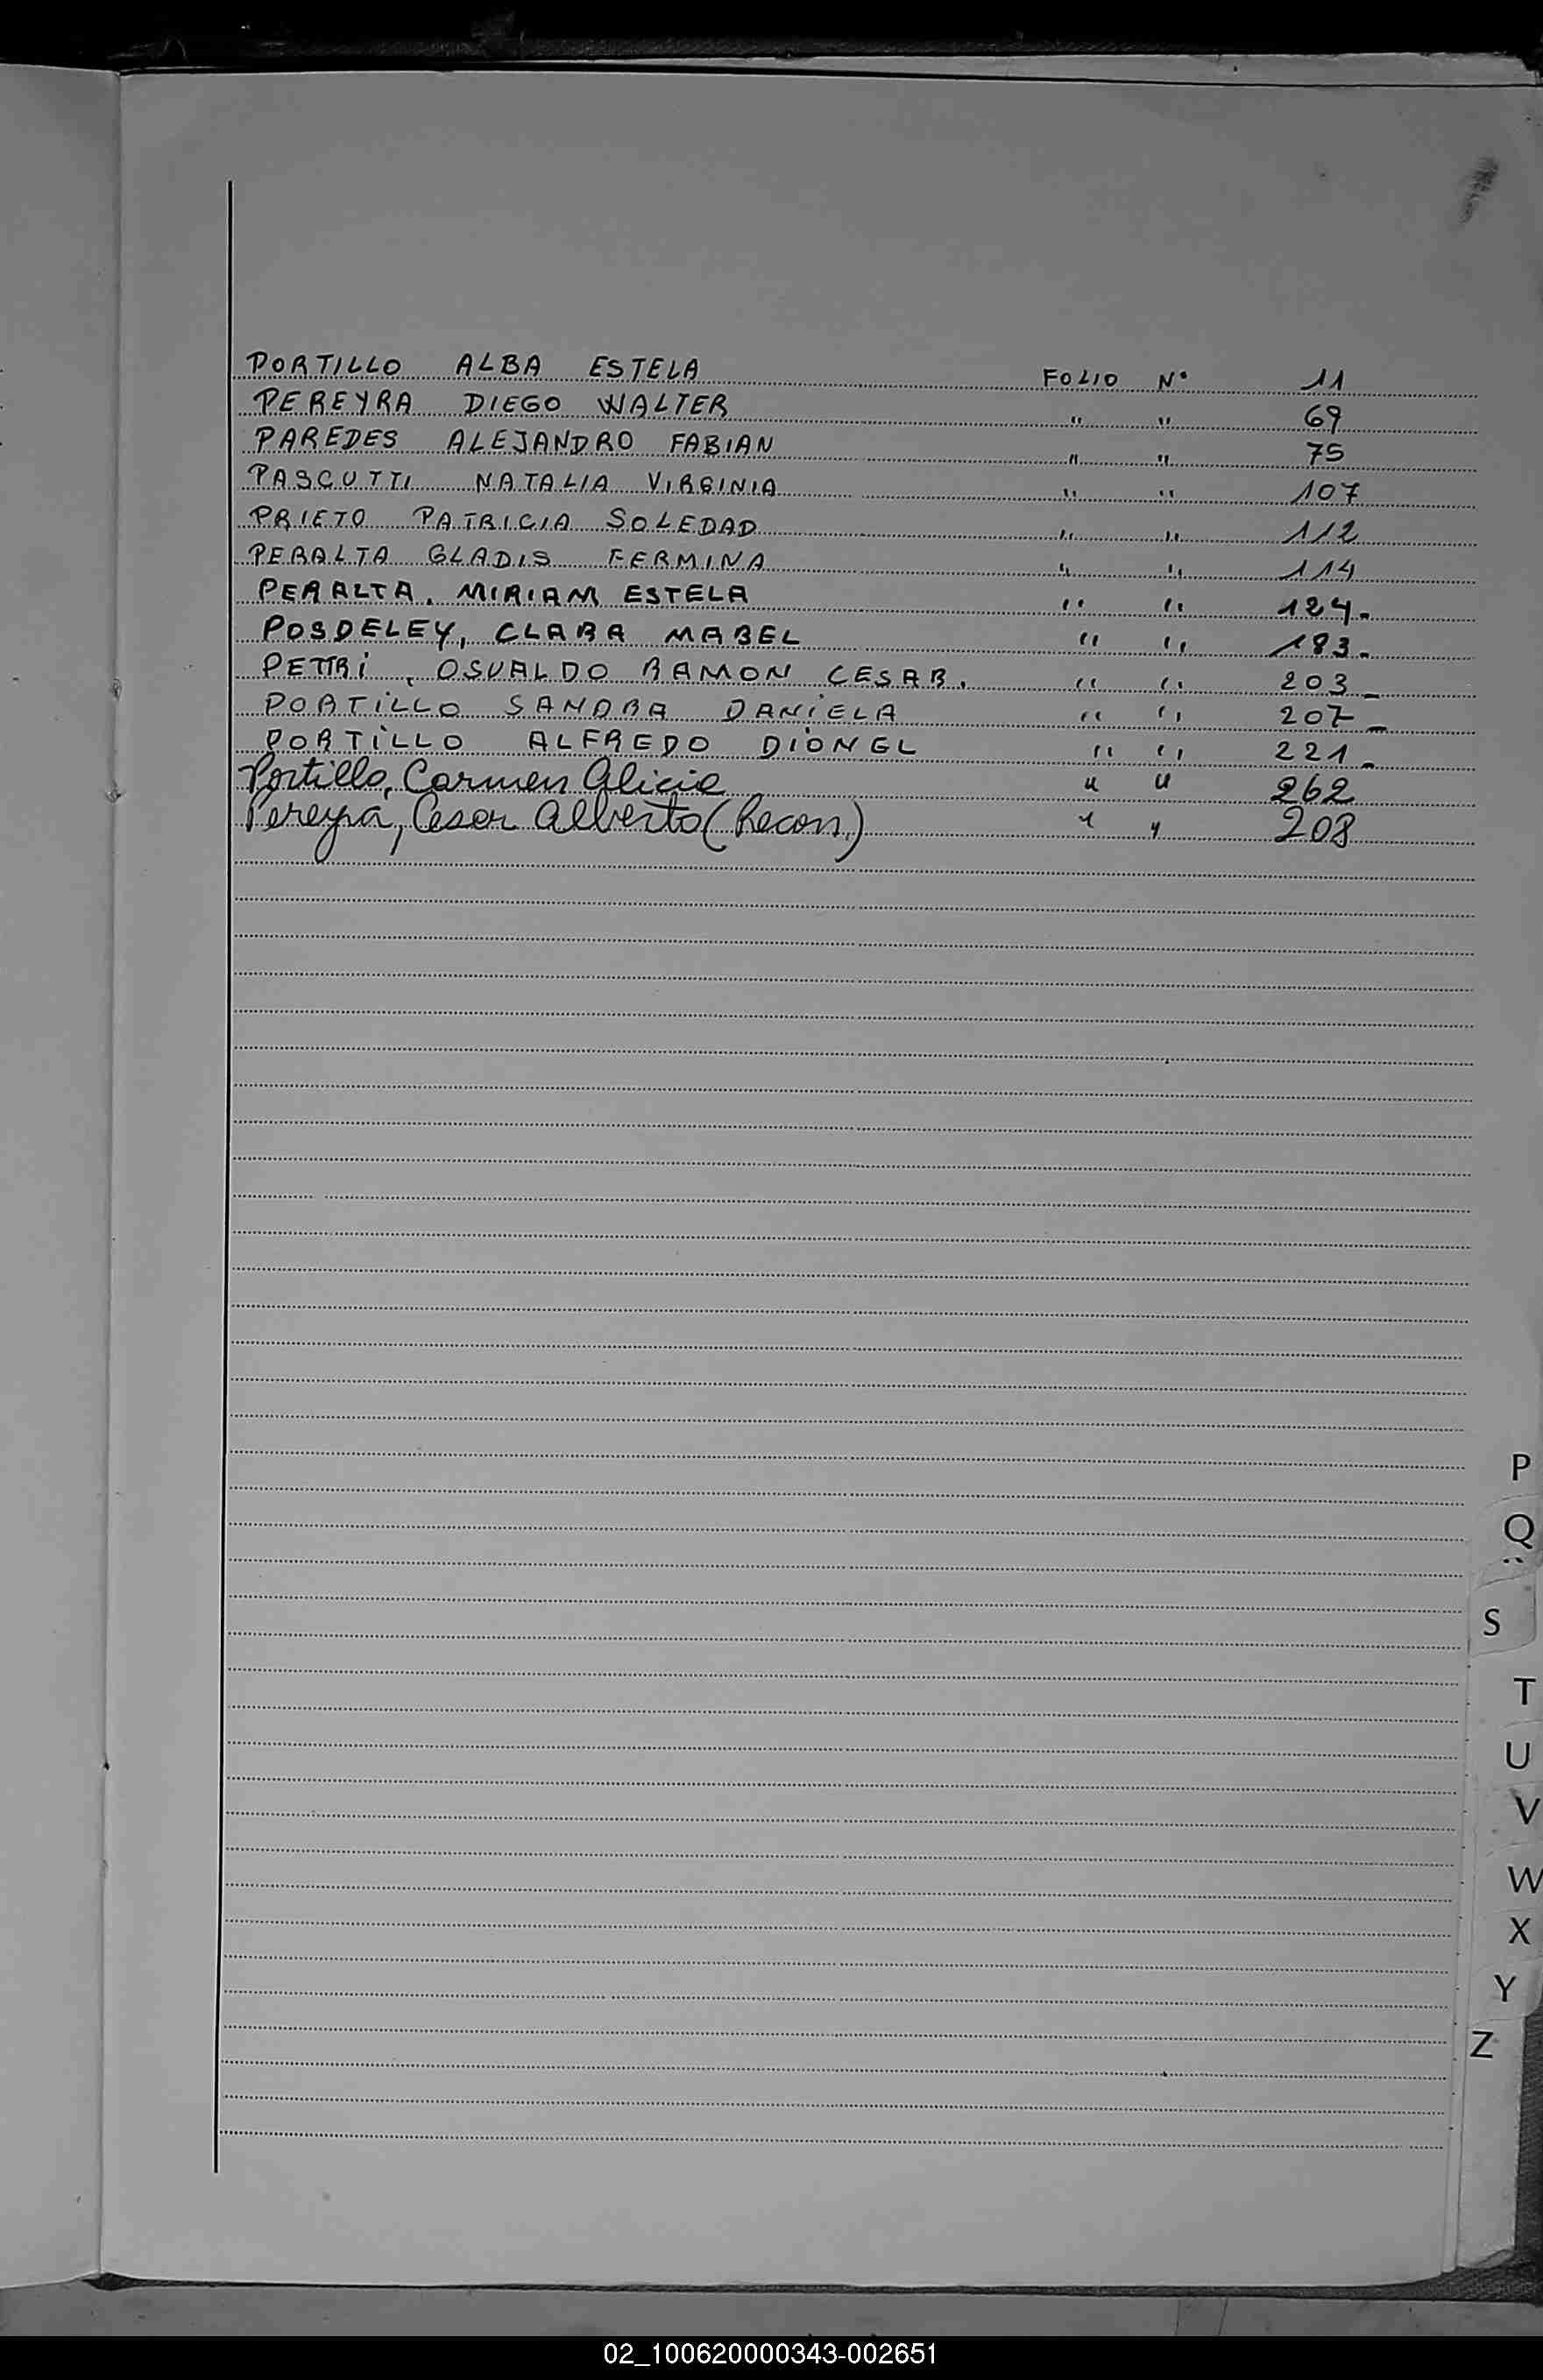 PORTILLO ALBA ESTELA FOLIO Nº 11
PEREYRA DIEGO WALTER " " 69
PAREDES ALEJANDRO FABIAN " " 75
PASCUTTI NATALIA VIRGINIA " " 107
PRIETO PATRICIA SOLEDAD " " 112
PERALTA GLADIS FERMINA " " 114
PERALTA. MIRIAM ESTELA " " 124.
POSDELEY, CLARA MABEL " " 183.
PETTRI, OSVALDO RAMON CESAR. " " 203_
PORTILLO SANDRA DANIELA " " 207_
PORTILLO ALFREDO DIONEL " " 221_
Portillo, Carmen Alicia " " 262
Pereyra, Cesar Alberto (Recon.) " " 208
P
Q
S
T
U
V
W
X
Y
Z
02_100620000343-002651